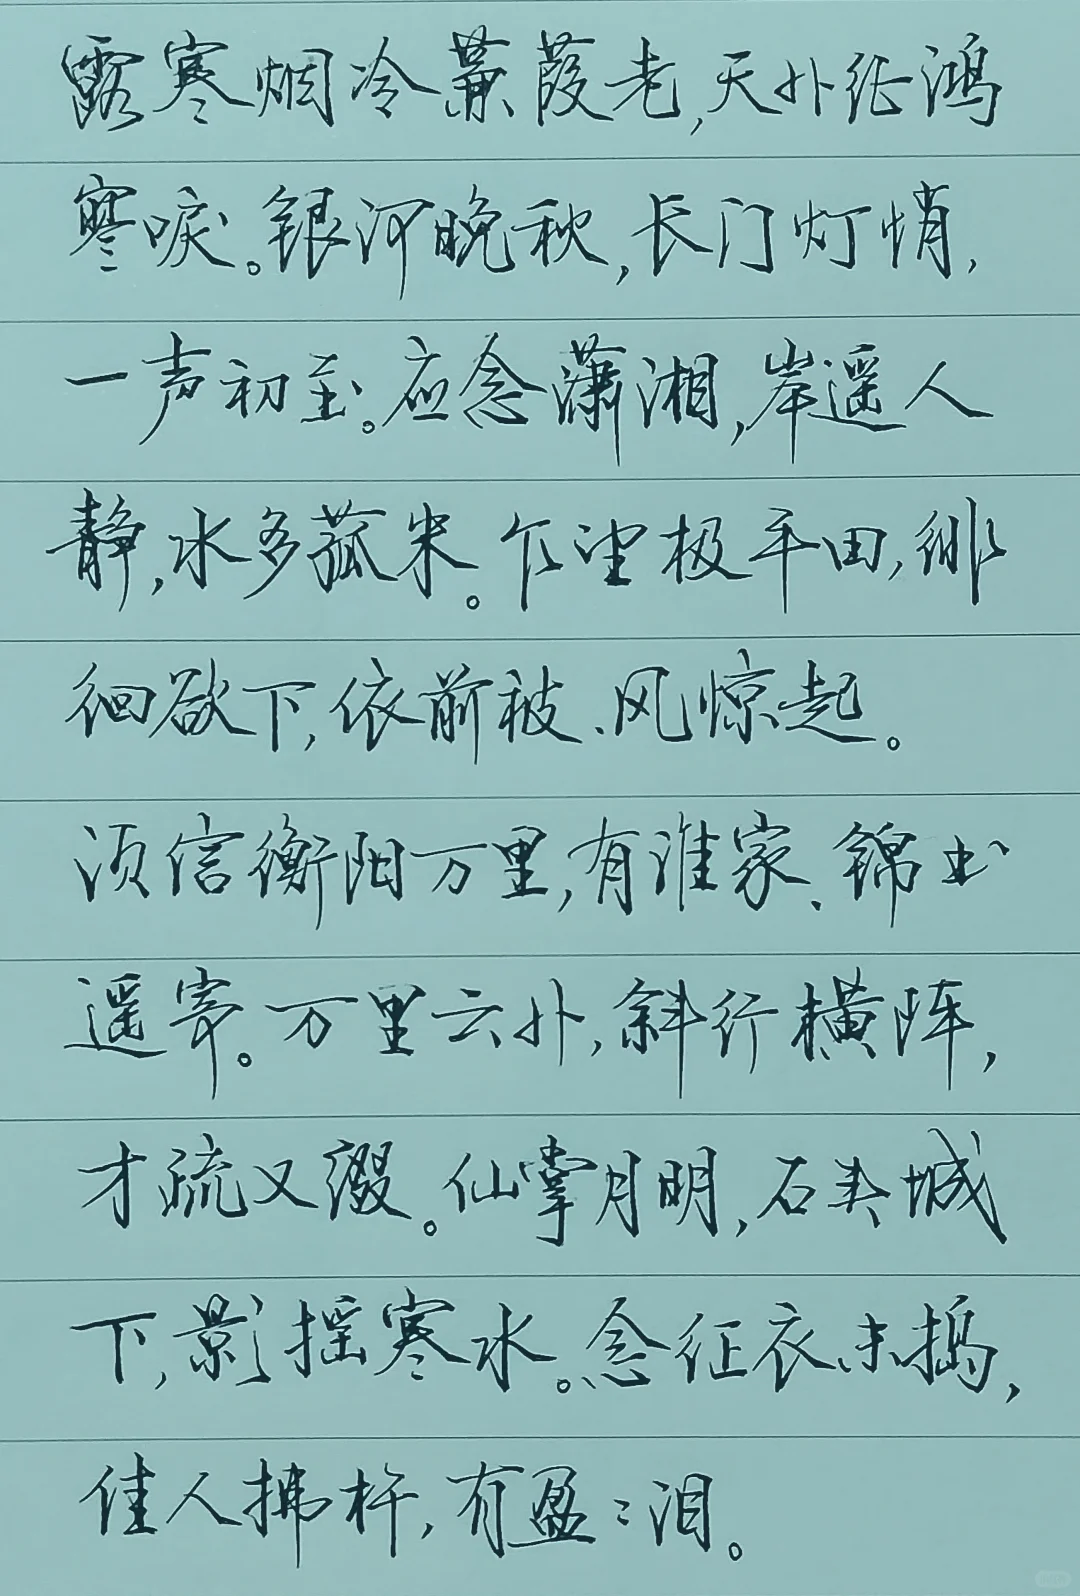 露寒烟冷蒹葭老,天外征鸿
寥唳。银河晚秋,长门灯悄,
一声初至。应念潇湘,岸遥人
静,水多菰米。乍望极平田,徘
徊欲下,依前被、风惊起。
须信衡阳万里,有谁家、锦书
遥寄。万里云外,斜行横阵,
才疏又缀。仙掌月明,石头城
下,影摇寒水。念征衣未捣,
佳人拂杵,有盈〻泪。